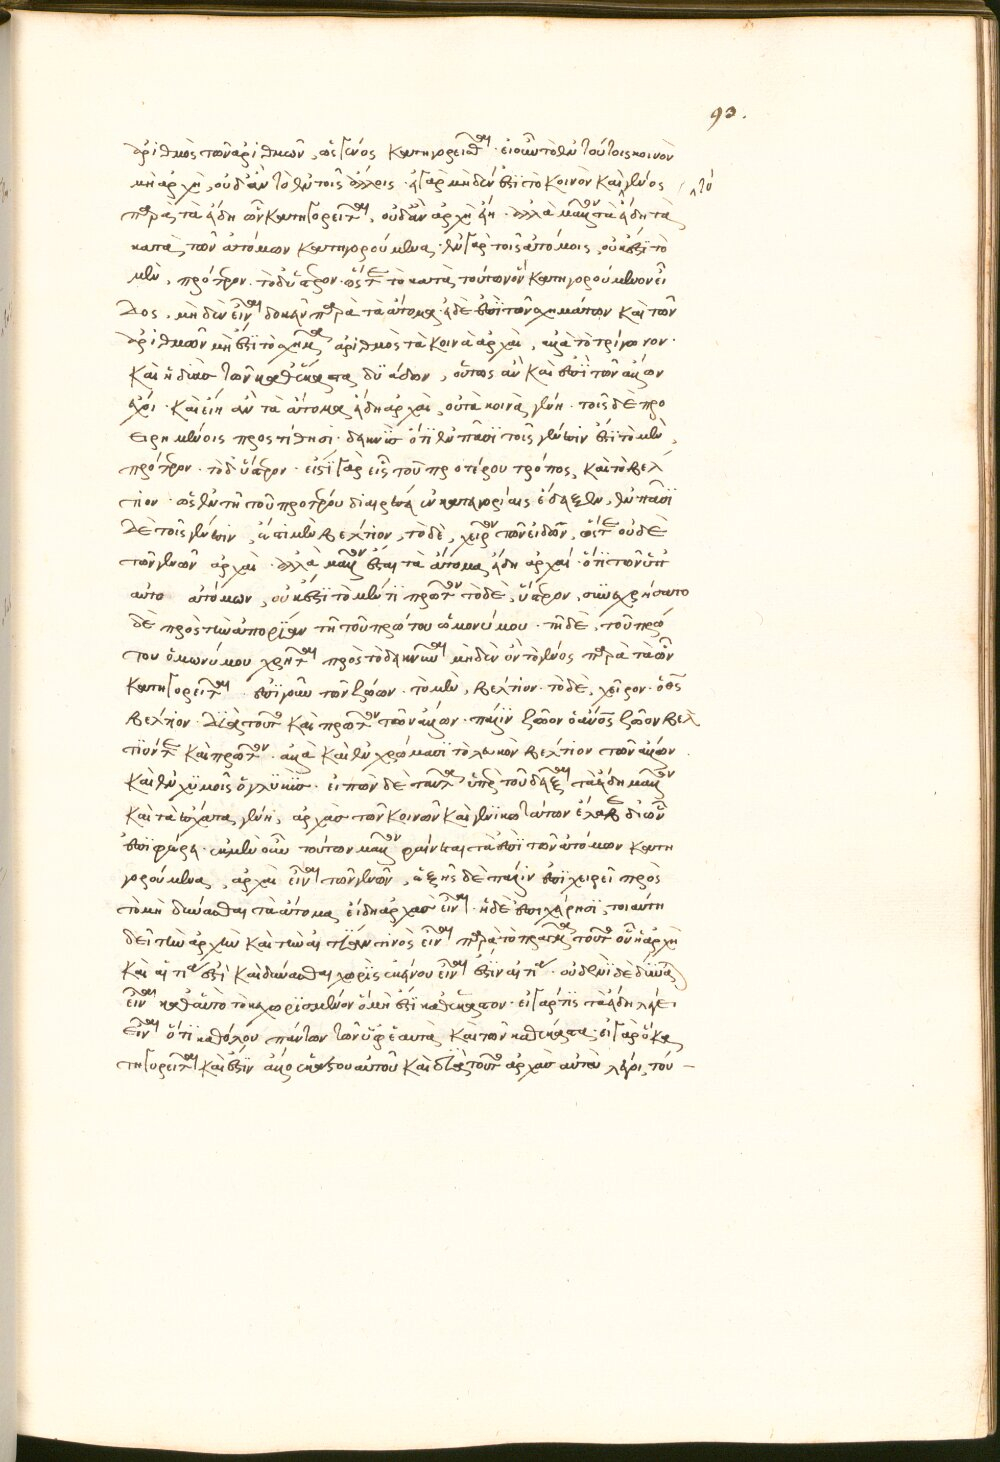 93.
ἀριθμὸς τῶν ἀριθμῶν, ὡς γένος κατηγορεῖσθαι· εἰ οὖν τὸ ἐν τούτοις κοινὸν
μὴ ἀρχή, οὐδ' ἂν τὸ ἐν τοῖς ἄλλοις· εἰ γὰρ μηδέν ἐστι τὸ κοινὸν καὶ γένος
παρὰ τὰ εἴδη ὧν κατηγορεῖται, οὐδ' ἂν ἀρχὴ εἴη· ἀλλὰ μᾶλλον τὰ εἴδη τὰ
κατὰ τῶν ἀτόμων κατηγορούμενα· ἐν γὰρ τοῖς ἀτόμοις, οὐκ ἔστι τὸ
μὲν, πρότερον· τὸ δ' ὕστερον· ὥστε τὸ κατὰ τούτων κατηγορούμενον εἶ
δος, μηδὲν εἶναι δοκεῖν παρὰ τὰ ἄτομα· εἰ δὲ ἐπὶ τῶν σχημάτων καὶ τῶν
ἀριθμῶν μὴ ἔστι τὸ σχῆμα ἀριθμὸς τὰ κοινὰ ἀρχαὶ, ἀλλὰ τὸ τρίγωνον·
καὶ ἡ δυὰς τῶν καθέκαστα δυάδων, οὕτως ἂν καὶ ἐπὶ τῶν ἄλλων
ἔχοι· καὶ εἴη ἂν τὰ ἄτομα εἴδη ἀρχαὶ, οὐ τὰ κοινὰ γένη· τοῖς δὲ προ
ειρημένοις προστίθησι· δεικνὺς ὅτι ἐν πᾶσι τοῖς γένεσιν ἐστὶ τὸ μὲν,
πρότερον· τὸ δ' ὕστερον· εἷς γὰρ εἷς τοῦ προτέρου τρόπος, καὶ τὸ βέλ
τιον· ὡς ἐν τῇ τοῦ προτέρου διαιρέσει ἐν κατηγορίαις ἔδειξεν, ἐν πᾶσι
δὲ τοῖς γένεσιν, ἐστὶ μὲν βέλτιον, τὸ δὲ, χεῖρον τῶν εἰδῶν, ὥστε οὐδὲ
τῶν γενῶν ἀρχαὶ· ἀλλὰ μᾶλλον ἔσται τὰ ἄτομα εἴδη ἀρχαί· ὅτι τῶν ὑπ'
αὐτὸ ἀτόμων, οὐκ ἔστι τὸ μέν τι πρῶτον τὸ δὲ, ὕστερον, συνεχρήσατο
δὲ πρὸς τὴν ἀπορίαν τῇ τοῦ πρώτου ὁμωνύμου· τῇ δὲ, τοῦ πρώ
του ὁμωνύμου χρῆται πρὸς τὸ δεικνύναι μηδὲν ὂν τὸ γένος παρὰ τὰ ὧν
κατηγορεῖται· ἐπὶ γοῦν τῶν ζώων· τὸ μὲν, βέλτιον· τὸ δὲ, χεῖρον· ὁ θεὸς
βέλτιον· διὰ τοῦτο καὶ πρῶτον τῶν ἄλλων· πάλιν ζῶον ὁ ἄνθρωπος ζῶον βέλ
τιόν τε καὶ πρῶτον· ἀλλὰ καὶ ἐν χρώμασι τὸ λευκὸν βέλτιον τῶν ἄλλων·
καὶ ἐν χυμοῖς ὁ γλυκύς· εἰπὼν δὲ ταῦτα ὑπὲρ τοῦ δεῖξαι τὰ εἴδη μᾶλλον
καὶ τὰ ἔσχατα γένη, ἀρχὰς τῶν κοινῶν καὶ γενικωτάτων ἔλαβε δι' ὧν
ἐπιφέρει· ἐκ μὲν οὖν τούτων μᾶλλον φαίνεται τὰ ἐπὶ τῶν ἀτόμων κατη
γορούμενα, ἀρχαὶ εἶναι τῶν γενῶν, ἑξῆς δὲ πάλιν ἐπιχειρεῖ πρὸς
τὸ μὴ δύνασθαι τὰ ἄτομα εἴδη ἀρχὰς εἶναι· ἡ δὲ ἐπιχείρησις, τοιαύτη
δεῖ τὴν ἀρχὴν καὶ τὴν αἰτίαν τινὸς εἶναι παρὰ τὸ πρᾶγμα τοῦτο οὗ ἡ ἀρχὴ
καὶ αἰτία ἐστὶ καὶ δύνασθαι χωρὶς ἐκείνου εἶναι ἔστιν αἰτία· οὐδενὶ δὲ δύναται
εἶναι καθ' αὑτὸ τὸ κεχωρισμένον ὃ μή ἐστι καθέκαστον· εἰ γάρ τις τὰ εἴδη λέγει
εἶναι ὅτι καθόλου πάντων τῶν ὑφ' ἑαυτὰ καὶ τῶν καθέκαστα· εἰ γὰρ ὃ κα
τηγορεῖται καὶ ἔστιν ἄλλο ἑκάστου αὐτοῦ καὶ διὰ τοῦτο ἀρχὰς αὐτὰ λέγοι, τού–